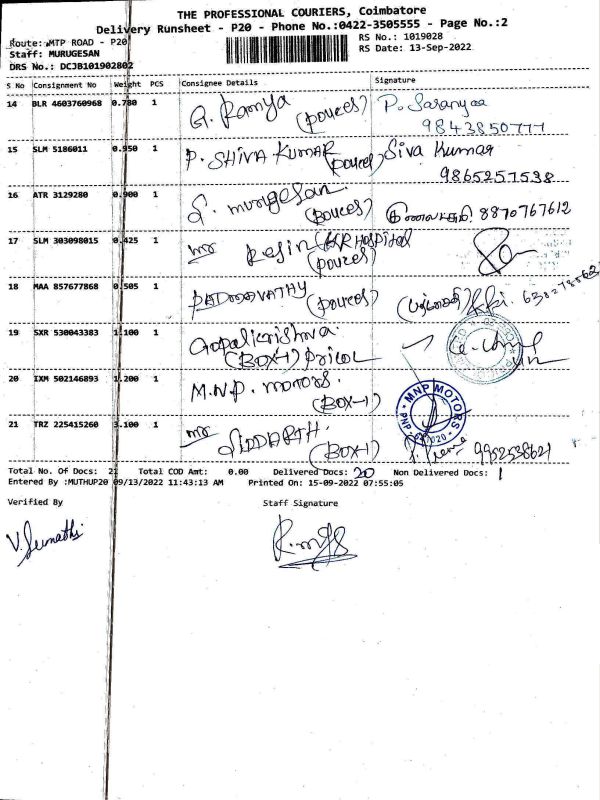 THE PROFESSIONAL COURIERS, Coimbatore
Delivery Runsheet - P20 - Phone No.:0422-3505555 - Page No.:2
Route: MTP ROAD - P20
RS No.: 1019028
Staff: MURUGESAN
RS Date: 13-Sep-2022
DRS No.: DCJB101902802
S No Consignment No Weight PCS Consignee Details Signature
14 BLR 4603760968 0.780 1 G. Ramya (pouces) P. Saranyaa
9843850777
15 SLM 5186011 0.950 1 P. SHIVA KUMAR (pouces) Siva Kumar
9865257538
16 ATR 3129280 0.900 1 S. murugesan (pouces) 8870767612
17 SLM 303098015 0.425 1 mr Resin Hospital
(pouces)
18 MAA 857677868 0.505 1 PADMAVATHY (pouces)
19 SXR 530043383 1.100 1 Gopalkrishna
(BOX-1) pricol
20 IXM 502146893 1.200 1 M.N.P. motors.
(BOX-1)
MNP MOTORS
21 TRZ 225415260 3.100 1 mr SIDDARTH.
(BOX-1) 9952538621
Total No. Of Docs: 21 Total COD Amt: 0.00 Delivered Docs: 20 Non Delivered Docs: 1
Entered By :MUTHUP20 09/13/2022 11:43:13 AM Printed On: 15-09-2022 07:55:05
Verified By Staff Signature